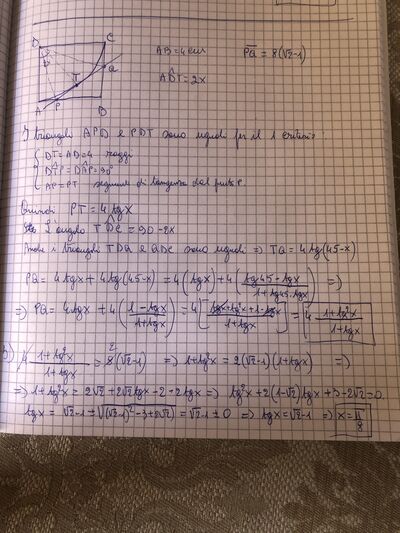 D C
Q
T
A P B
AB = 4cm PQ = 8(√2-1)
AD̂T = 2x
I triangoli APD e PDT sono uguali per il 1 criterio:
DT = AD = 4 raggi
DT̂P = DÂP = 90°
AP = PT segmenti di tangenza dal punto P.
Quindi PT = 4 tgx
L'angolo TD̂C = 90-2x
Anche i triangoli TDQ e QDC sono uguali ⇒ TQ = 4 tg(45-x)
PQ = 4 tgx + 4 tg(45-x) = 4(tgx) + 4(tg45 - tgx / 1+tg45·tgx) ⇒
⇒ PQ = 4 tgx + 4(1-tgx / 1+tgx) = 4[tgx + tg²x + 1 - tgx / 1+tgx] = 4 1+tg²x / 1+tgx
b) 4 1+tg²x / 1+tgx = 8(√2-1) ⇒ 1+tg²x = 2(√2-1)(1+tgx) ⇒
⇒ 1+tg²x = 2√2 + 2√2 tgx - 2 - 2tgx ⇒ tg²x + 2(1-√2)tgx + 3 - 2√2 = 0
tgx = √2-1 ± √(√2-1)² - 3 + 2√2 = √2-1 ± 0 ⇒ tgx = √2-1 ⇒ x = π/8